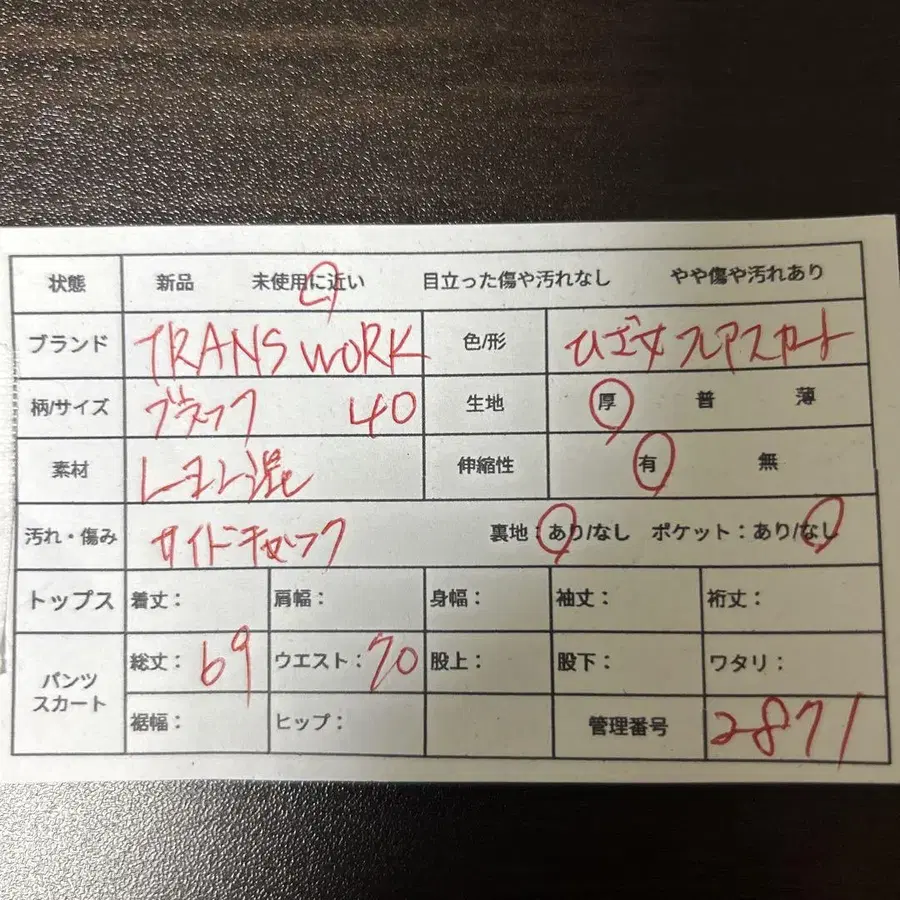 状態 新品 未使用に近い 目立った傷や汚れなし やや傷や汚れあり
ブランド TRANS WORK 色/形 ひざ丈フレアスカート
柄/サイズ ブラック 40 生地 厚 普 薄
素材 レーヨン混 伸縮性 有 無
汚れ・傷み サイドチャック 裏地：あり/なし ポケット：あり/なし
トップス 着丈： 肩幅： 身幅： 袖丈： 裄丈：
パンツ スカート 総丈：69 ウエスト：70 股上： 股下： ワタリ：
裾幅： ヒップ： 管理番号 2871